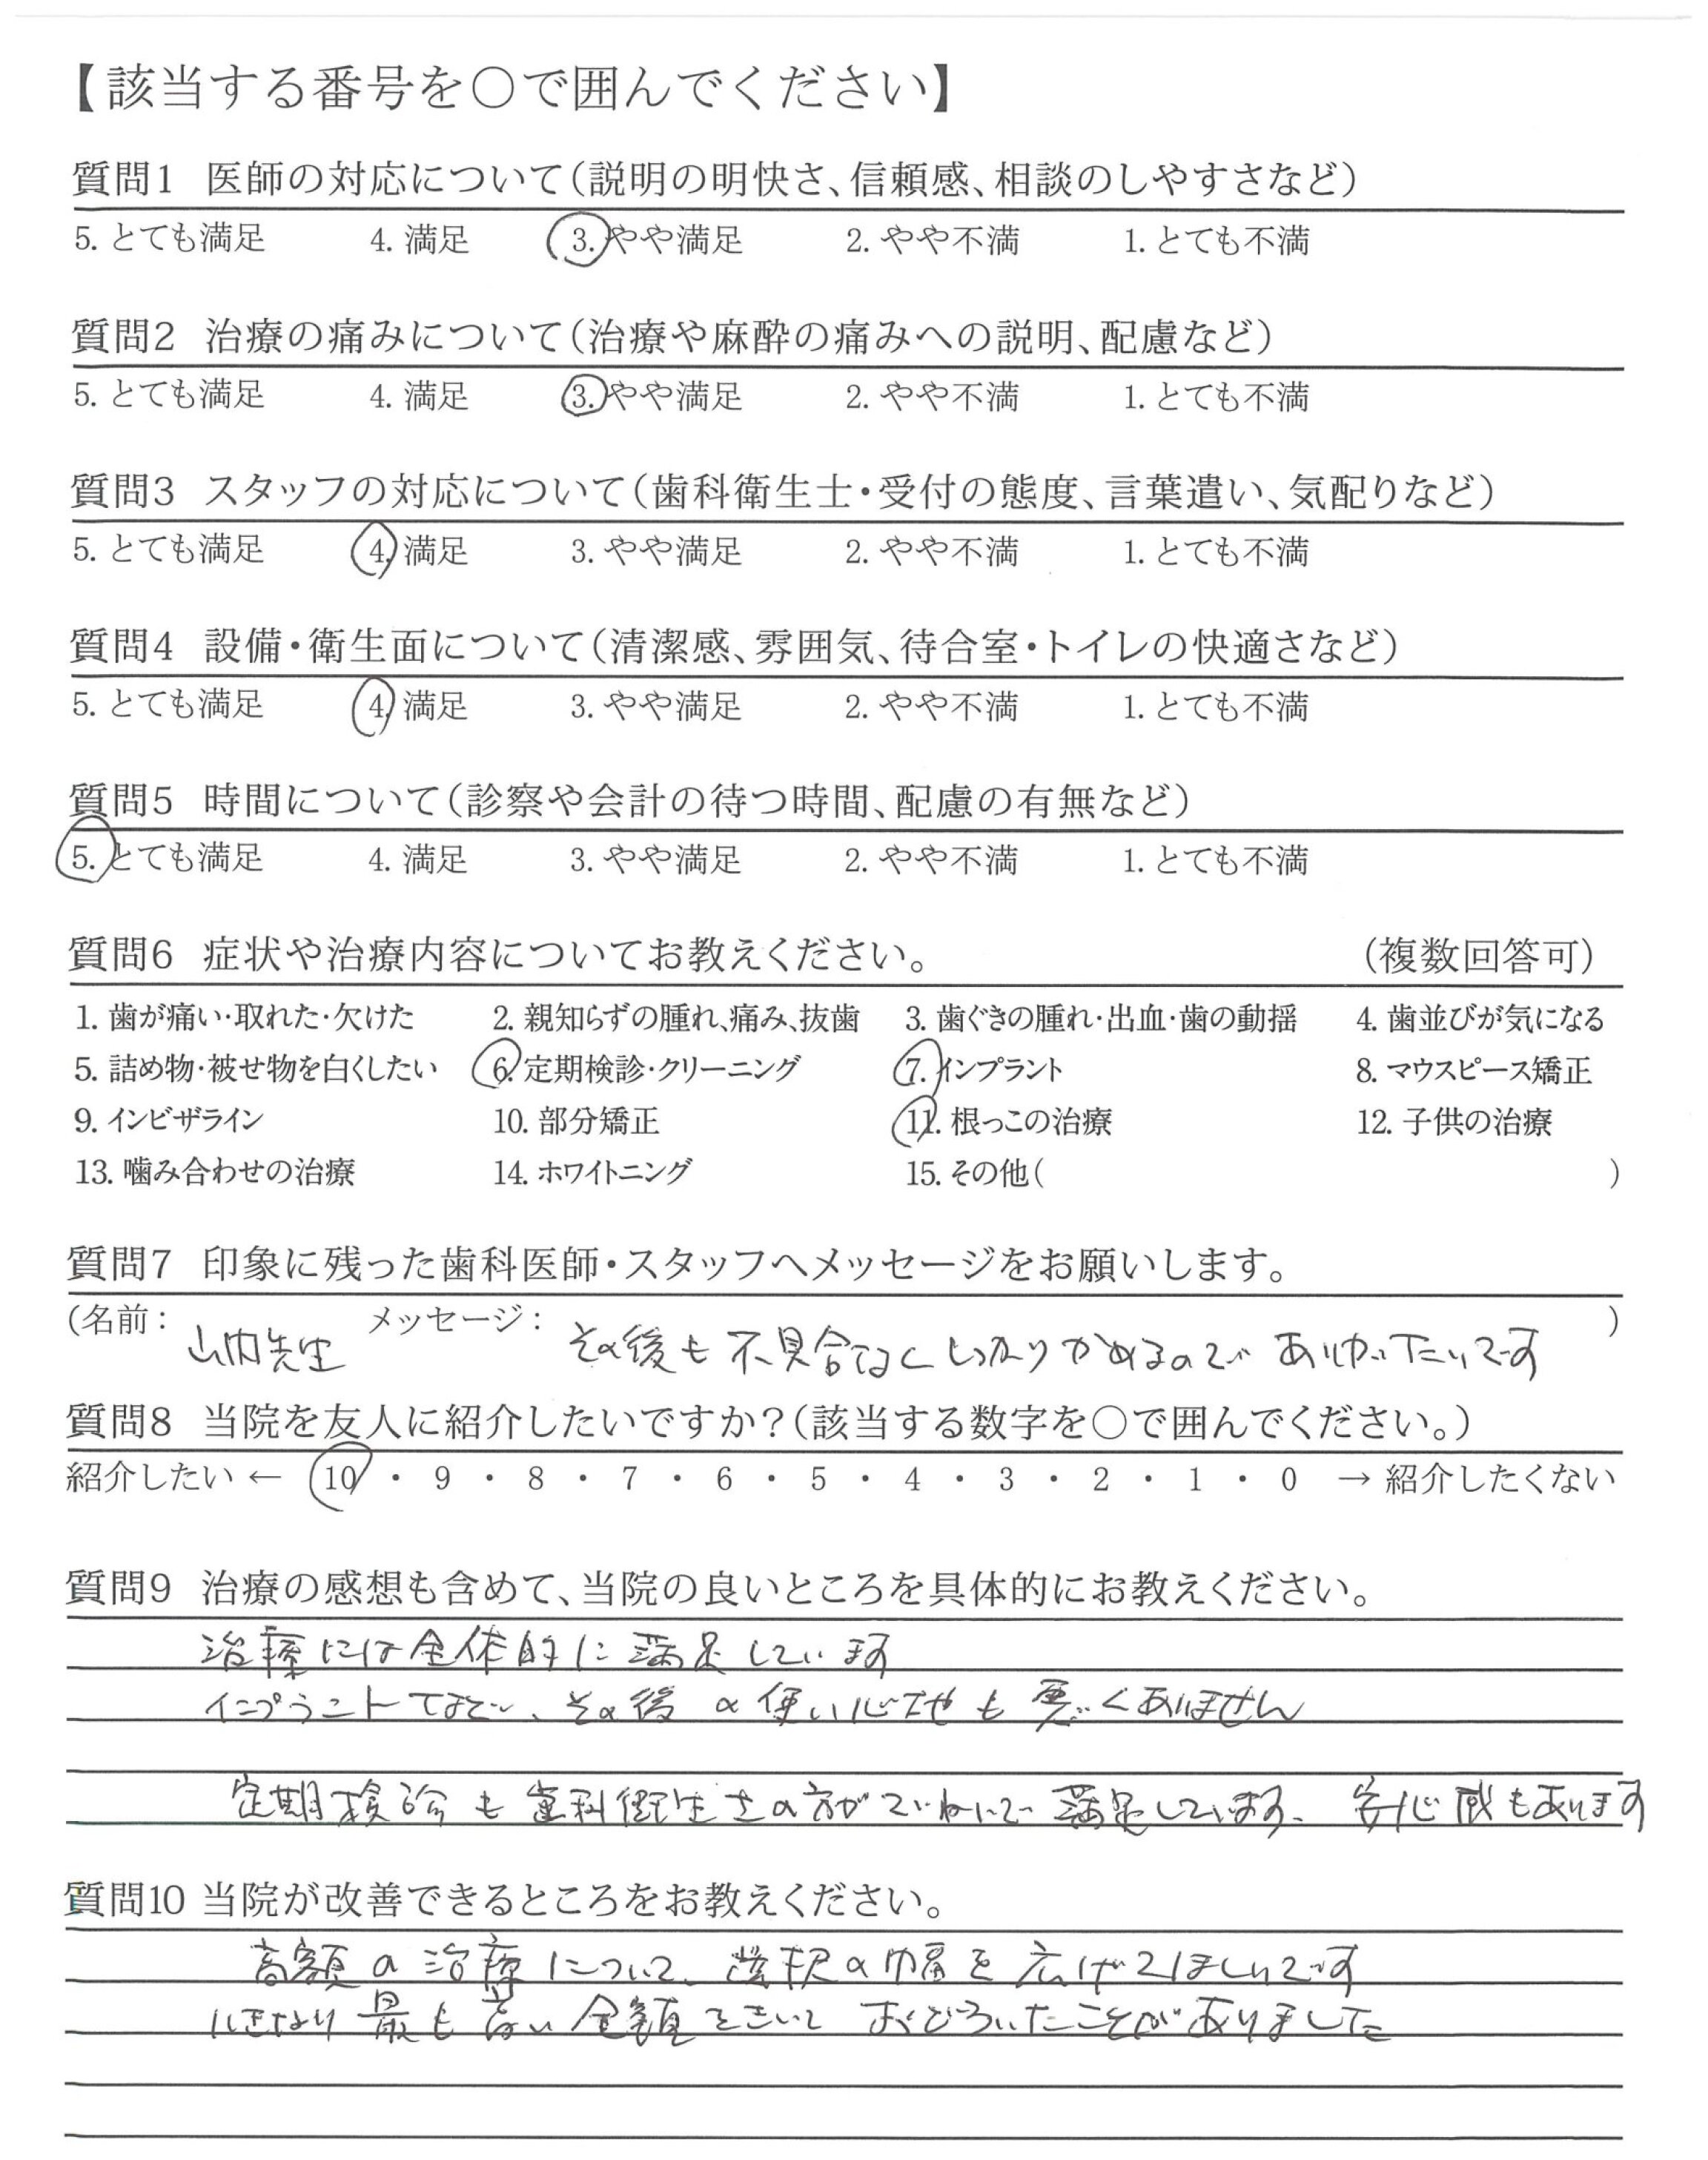 【該当する番号を○で囲んでください】
質問1 医師の対応について（説明の明快さ、信頼感、相談のしやすさなど）
5. とても満足 4. 満足 3. やや満足 2. やや不満 1. とても不満
質問2 治療の痛みについて（治療や麻酔の痛みへの説明、配慮など）
5. とても満足 4. 満足 3. やや満足 2. やや不満 1. とても不満
質問3 スタッフの対応について（歯科衛生士・受付の態度、言葉遣い、気配りなど）
5. とても満足 4. 満足 3. やや満足 2. やや不満 1. とても不満
質問4 設備・衛生面について（清潔感、雰囲気、待合室・トイレの快適さなど）
5. とても満足 4. 満足 3. やや満足 2. やや不満 1. とても不満
質問5 時間について（診察や会計の待つ時間、配慮の有無など）
5. とても満足 4. 満足 3. やや満足 2. やや不満 1. とても不満
質問6 症状や治療内容についてお教えください。 （複数回答可）
1. 歯が痛い・取れた・欠けた 2. 親知らずの腫れ、痛み、抜歯 3. 歯ぐきの腫れ・出血・歯の動揺 4. 歯並びが気になる
5. 詰め物・被せ物を白くしたい 6. 定期検診・クリーニング 7. インプラント 8. マウスピース矯正
9. インビザライン 10. 部分矯正 11. 根っこの治療 12. 子供の治療
13. 噛み合わせの治療 14. ホワイトニング 15. その他( )
質問7 印象に残った歯科医師・スタッフへメッセージをお願いします。
(名前： 山内先生 メッセージ： その後も不具合なくしっかりかめるのでありがたいです )
質問8 当院を友人に紹介したいですか？（該当する数字を○で囲んでください。）
紹介したい ← 10 ・ 9 ・ 8 ・ 7 ・ 6 ・ 5 ・ 4 ・ 3 ・ 2 ・ 1 ・ 0 → 紹介したくない
質問9 治療の感想も含めて、当院の良いところを具体的にお教えください。
治療には全体的に満足しています
インプラントなど、その後の使い心地も悪くありません
定期検診も歯科衛生士の方がていねいで満足しています、安心感もあります
質問10 当院が改善できるところをお教えください。
高額の治療について、選択の幅を広げてほしいです
いきなり最も高い金額をきいておどろいたことがありました